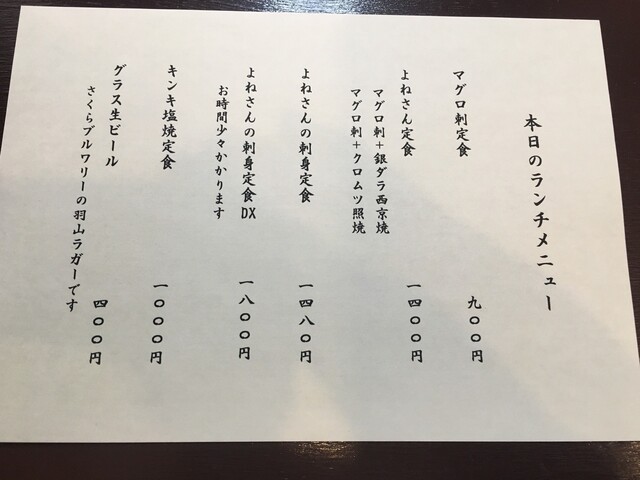 本日のランチメニュー
マグロ刺定食 九〇〇円
よねさん定食 一四〇〇円
マグロ刺+銀ダラ西京焼
マグロ刺+クロムツ照焼
よねさんの刺身定食 一四八〇円
よねさんの刺身定食DX 一八〇〇円
お時間少々かかります
キンキ塩焼定食 一〇〇〇円
グラス生ビール 四〇〇円
さくらブルワリーの羽山ラガーです